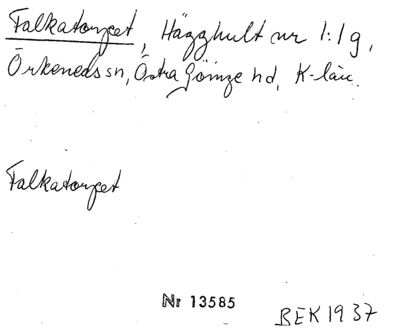 Falkatorpet, Hägghult nr 1:1 g,
Örkeneds sn, Östra Göinge hd, K-län.
Falkatorpet
Nr 13585
BEK 1937